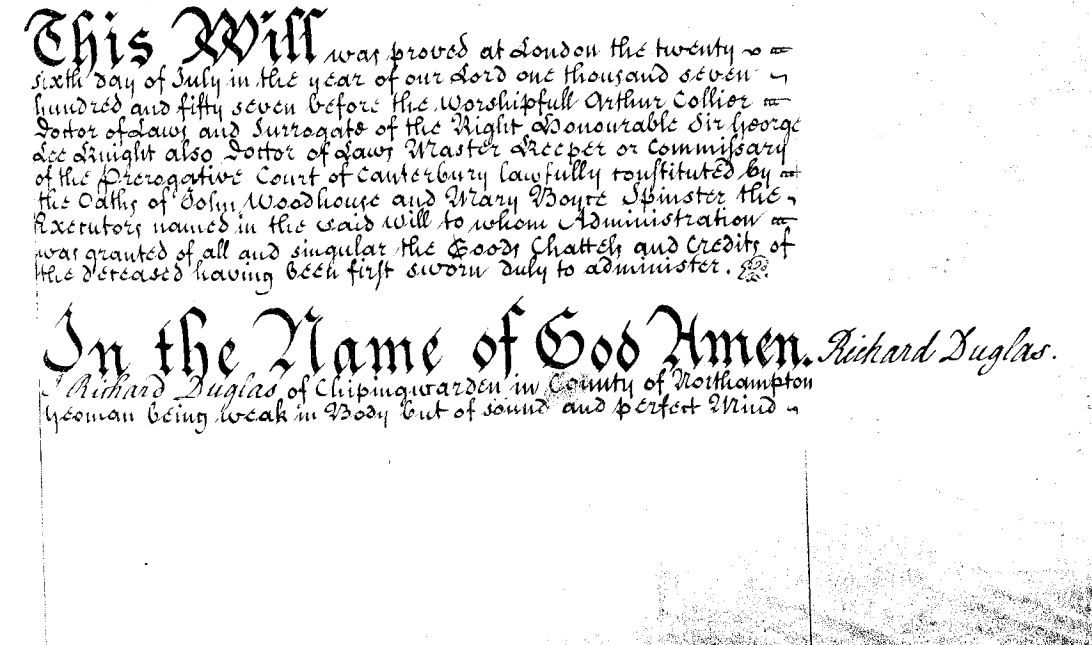 This Will was proved at London the twenty
sixth day of July in the year of our Lord one thousand seven
hundred and fifty seven before the Worshipfull Arthur Collier
Doctor of Laws and Surrogate of the Right Honourable Sir George
Lee Knight also Doctor of Laws Master Keeper or Commissary
of the Prerogative Court of Canterbury lawfully constituted by
the Oaths of John Woodhouse and Mary Boyce Spinster the
Executors named in the said Will to whom Administration
was granted of all and singular the Goods Chattels and Credits of
the deceased having been first sworn duly to administer.
In the Name of God Amen. Richard Duglas.
I Richard Duglas of Chipingwarden in County of Northampton
Yeoman being weak in Body but of sound and perfect Mind